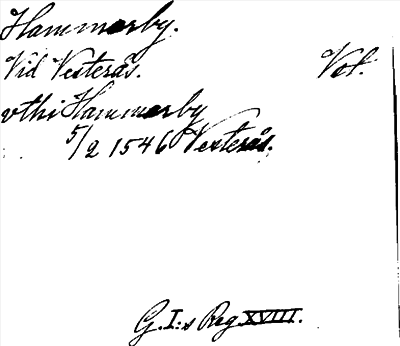 Hammarby.
Vid Vesterås. Vol.
vthi Hammarby
5/2 1546 Vesterås.
G. I:s Reg XVIII.